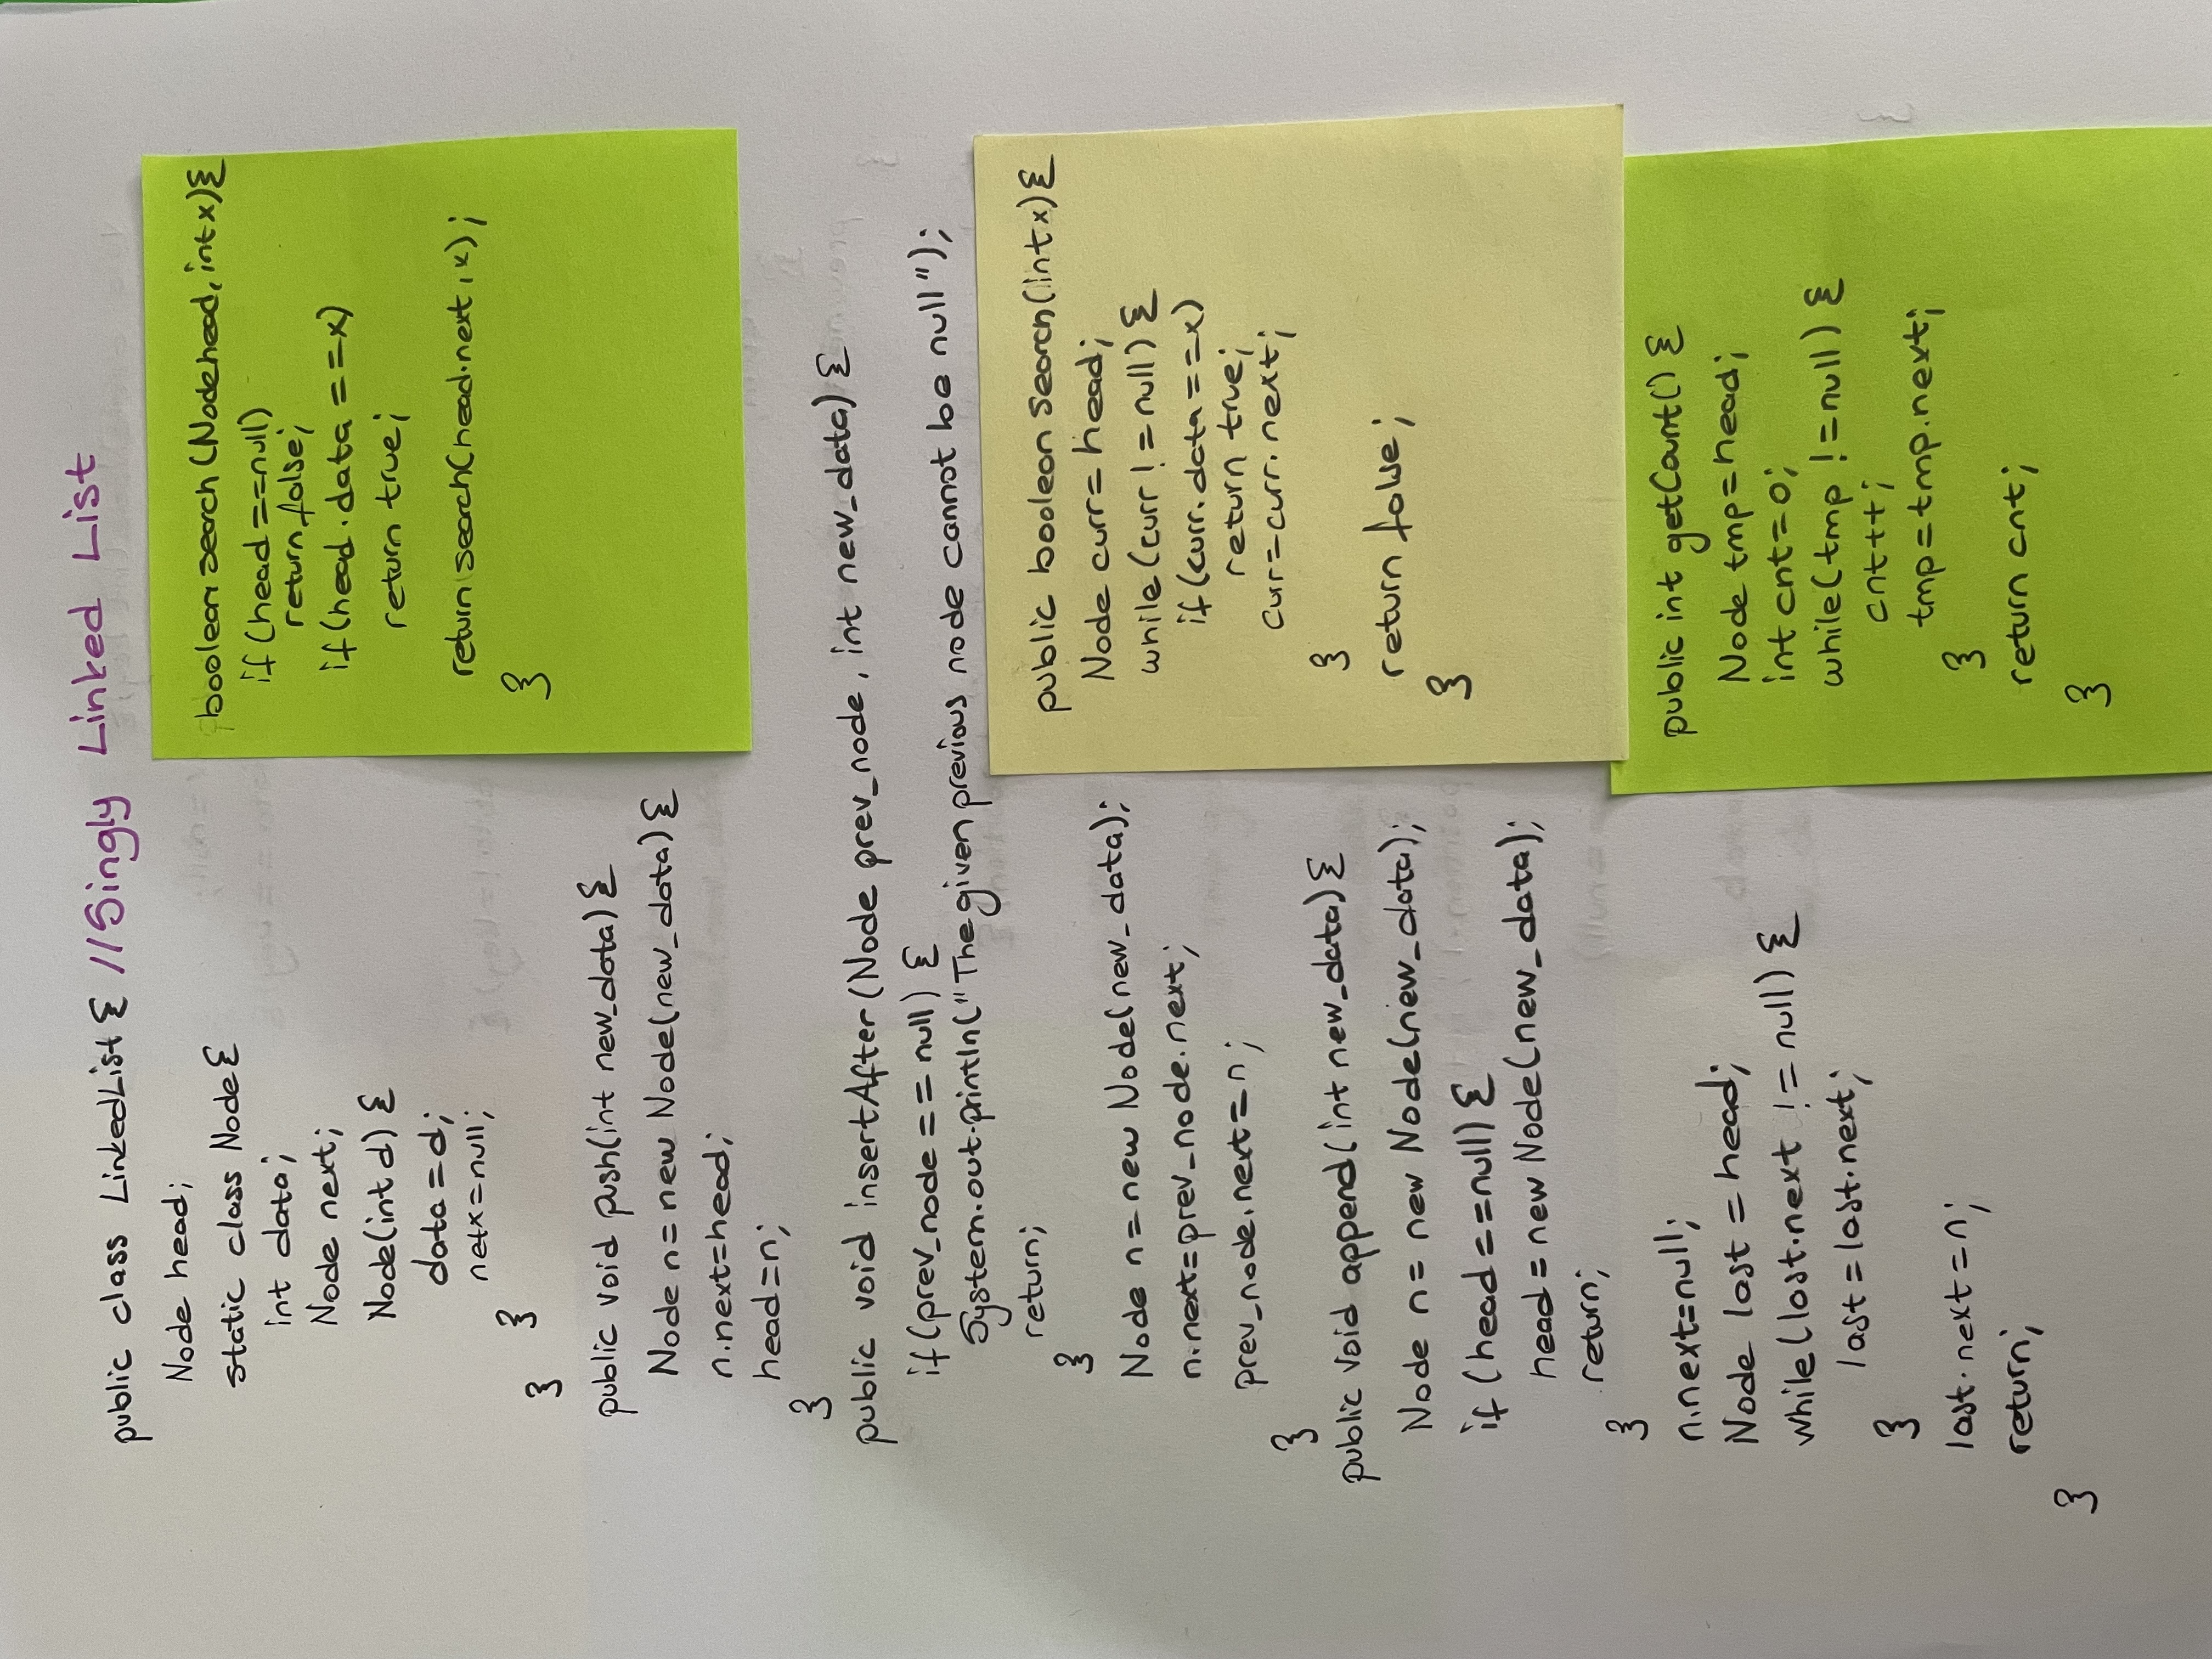 public class LinkedList { //Singly Linked List
Node head;
static class Node {
int data;
Node next;
Node(int d) {
data = d;
netx = null;
}
}
public void push(int new_data) {
Node n = new Node(new_data) {
n.next=head;
head=n;
}
public void insertAfter (Node prev_node, int new_data) {
if (prev_node == null) {
System.out.println("The given previous node cannot be null");
return;
}
Node n = new Node(new_data);
n.next=prev_node.next;
prev_node.next = n;
}
public void append(int new_data) {
Node n = new Node(new_data);
if (head ==null) {
head = new Node(new_data);
return;
}
n.next=null;
Node last = head;
while(last.next != null) {
last = last.next;
}
last.next = n;
return;
}
boolean search (Node head, int x) {
if (head ==null)
return false;
if (head.data ==x)
return true;
return search(head.next, x);
}
public boolean search(int x) {
Node curr= head;
while (curr != null) {
if (curr.data ==x)
return true;
curr=curr.next;
}
return false;
}
public int getCount() {
Node tmp=head;
int cnt=0;
while(tmp !=null) {
cnt++;
tmp=tmp.next;
}
return cnt;
}